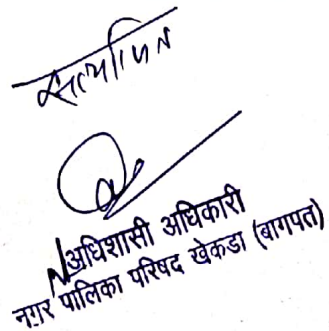 सत्यापित
अधिशासी अधिकारी
नगर पालिका परिषद खेकडा (बागपत)